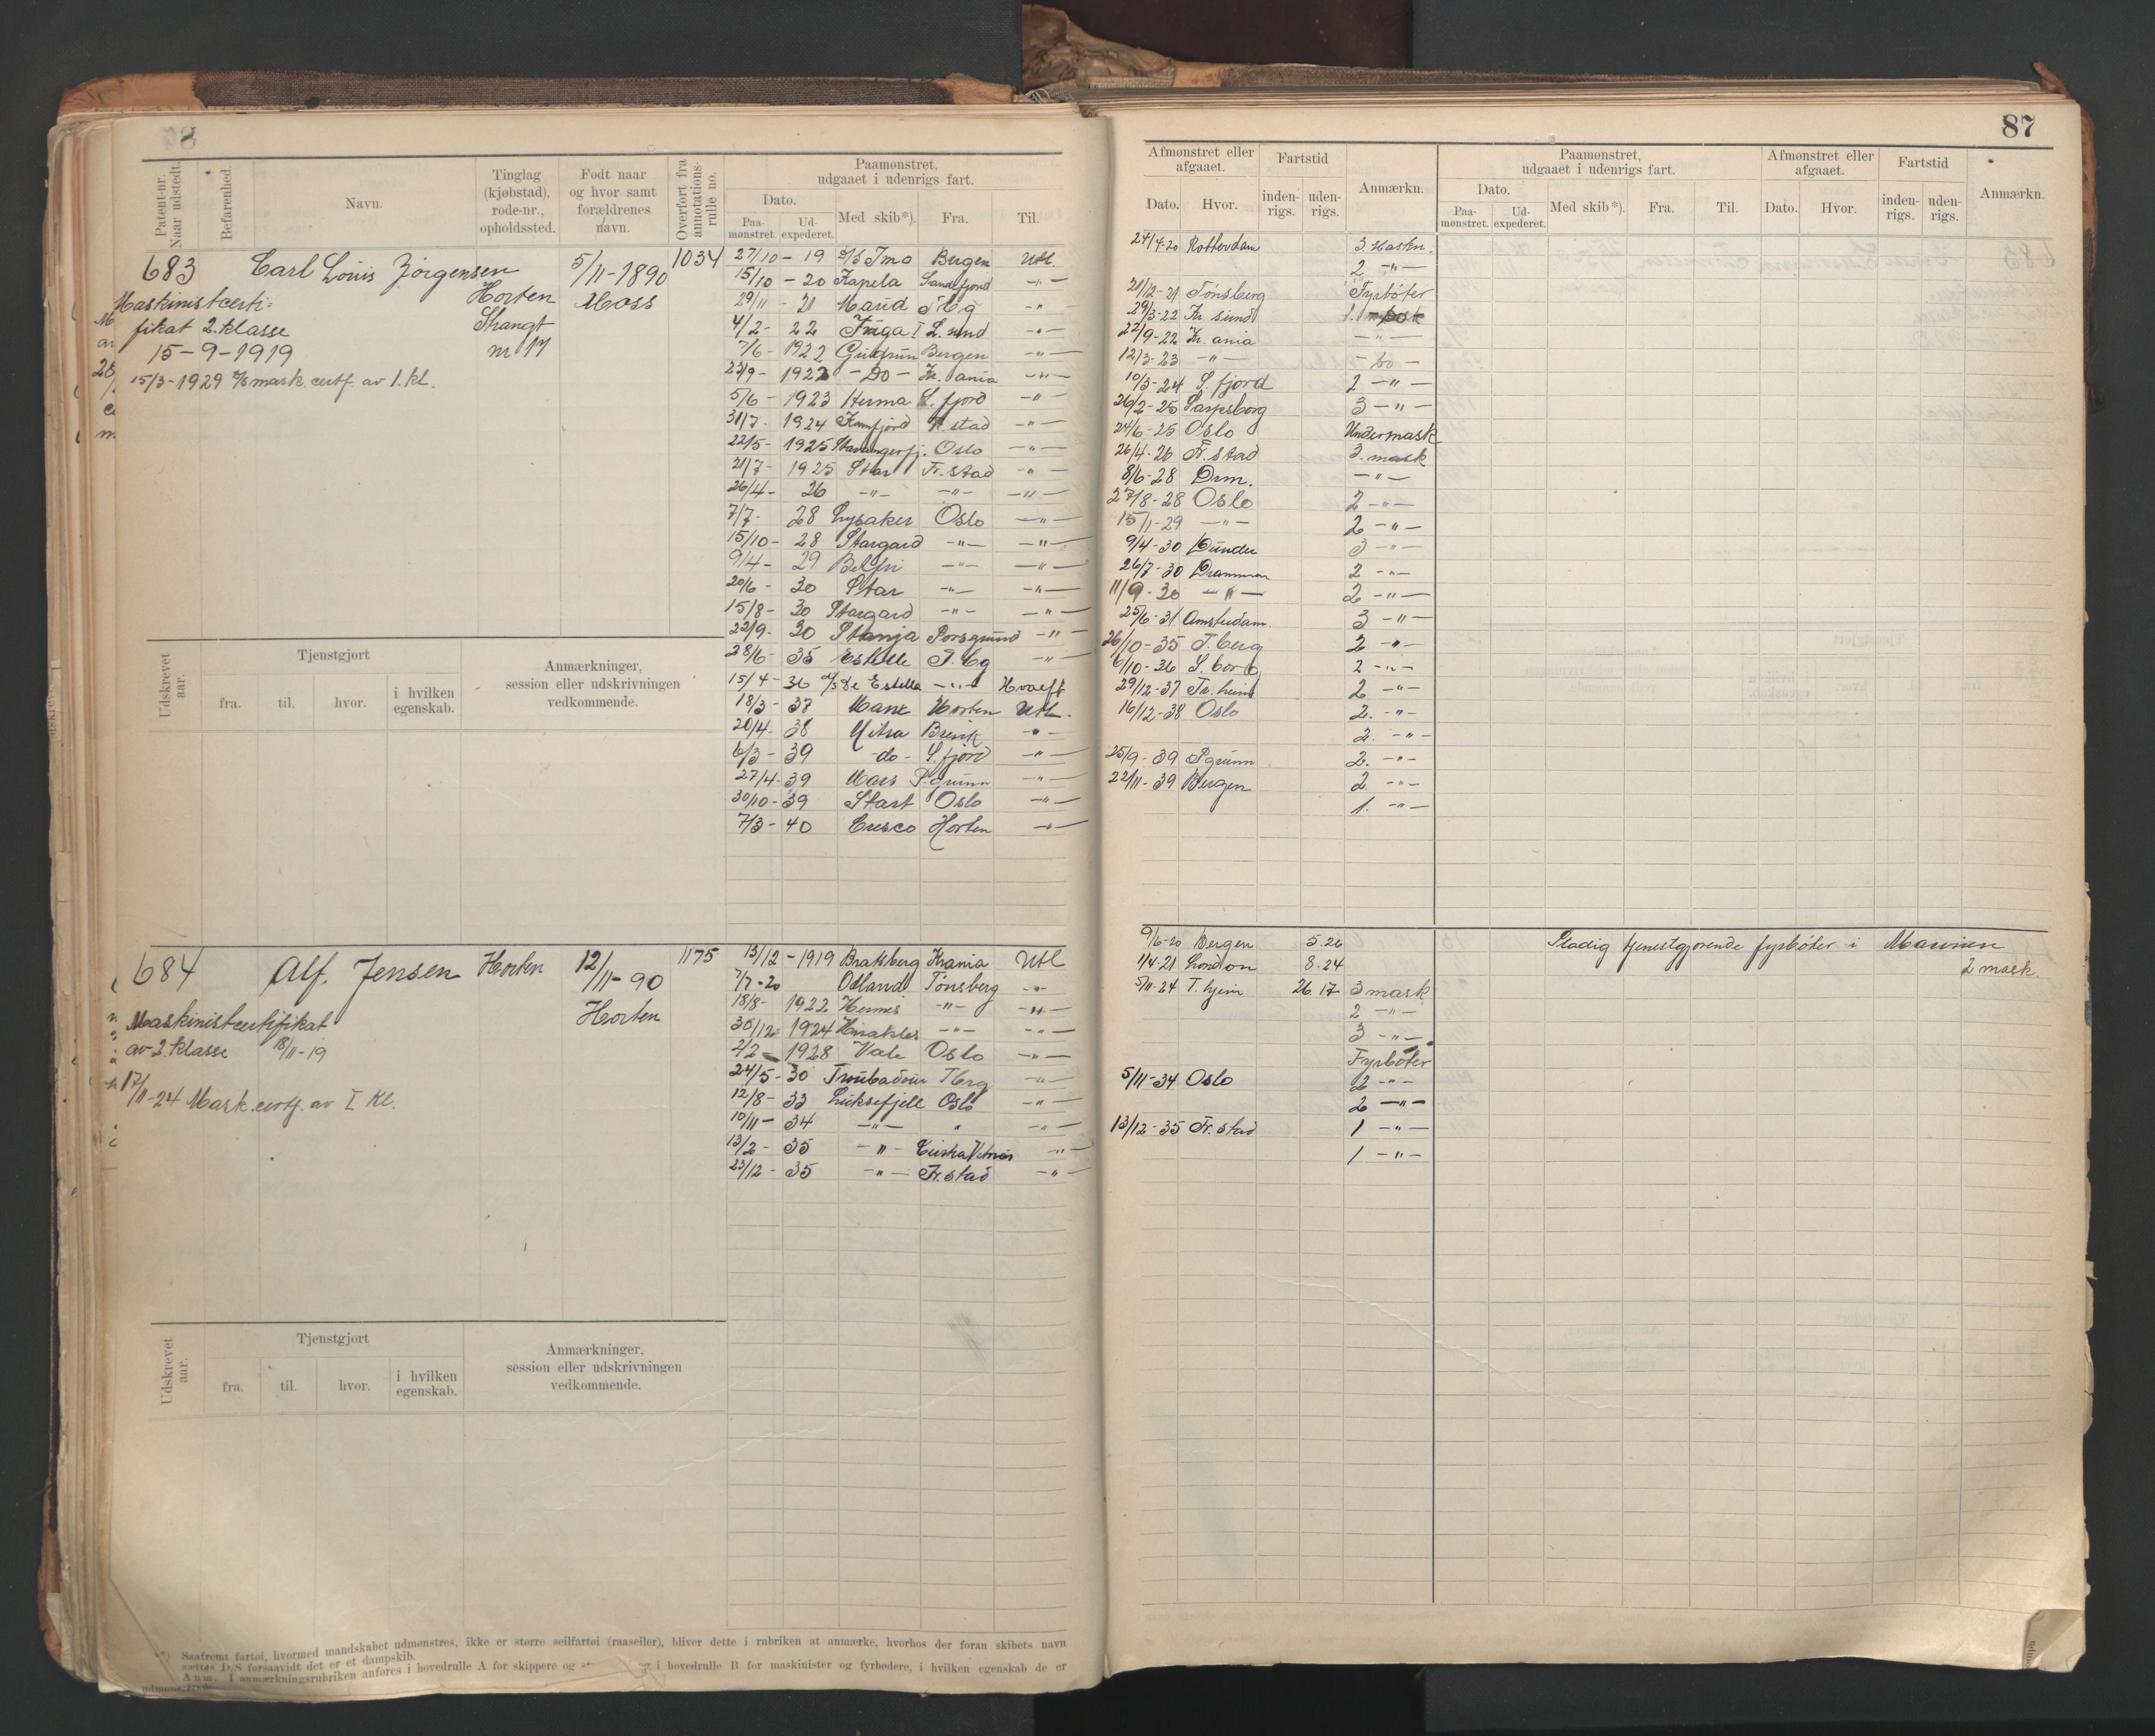 87
Patent-nr. Naar udstedt.
Befarenhed.
Navn.
Tinglag (kjøbstad), rode-nr., opholdssted.
Født naar og hvor samt forældrenes navn.
Overført fra annotations-rulle no.
Paamønstret, udgaaet i udenrigs fart.
Dato.
Paa-mønstret.
Ud-expederet.
Med skib*).
Fra.
Til.
Afmønstret eller afgaaet.
Dato.
Hvor.
Fartstid
inden-rigs.
uden-rigs.
Anmærkn.
Paamønstret, udgaaet i udenrigs fart.
Dato.
Paa-mønstret.
Ud-expederet.
Med skib*).
Fra.
Til.
Afmønstret eller afgaaet.
Dato.
Hvor.
Fartstid
inden-rigs.
uden-rigs.
Anmærkn.
683 Carl Louis Jørgensen 5/11-1890 1034
Horten Moss
Maskinistcerti=
fikat 2. klasse
nr 17
15-9-1919
15/3-1929 mask. certf. av 1. kl.
27/10-19 Imo Bergen Utl.
15/10-20 Kapela Sandefjord -"-
29/11-21 Maud -"-
4/2-22 -"-
7/6-1922 Gudrun Bergen -"-
23/9-1922 -Do- Kr. ania -"-
5/6-1923 Herma S. fjord -"-
31/7-1924 Fr. stad -"-
22/5-1925 Stavangerfj. Oslo -"-
21/7-1925 Star Fr. stad -"-
26/4-26 -"- -"- -"-
7/7-28 Lysaker Oslo -"-
15/10-28 Stargard -"- -"-
9/4-29 Belfri -"- -"-
20/6-30 Star -"- -"-
15/8-30 Stargard -"- -"-
22/9-30 Stanja Porsgrund -"-
28/6-35 Estelle -"-
15/4-36 Estella -"- Hvalf
18/3-37 Horten Utl.
20/4-38 Mitra Brevik -"-
6/3-39 -do- S. fjord -"-
27/4-39 P. grunn -"-
30/10-39 Start Oslo -"-
7/3-40 Cresco Horten -"-
24/4-20 Rotterdam 3. Maskn.
2 -"-
21/12-21 Tønsberg Fyrbøter
29/3-22 Kr sund 1.
22/9-22 Kr. ania -"-
12/3-23 -"- -Do-
10/3-24 S. fjord 2 -"-
26/2-25 Sarpsborg 3 -"-
24/6-25 Oslo Undermask
26/4-26 Fr. stad 3. mask
8/6-28 Drm. -"-
27/8-28 Oslo 2 -"-
15/1-29 -"- 2 -"-
9/4-30 3 -"-
26/7-30 Drammen 2 -"-
11/9-30 -"- 2 -"-
25/6-31 Amsterdam. 3 -"-
26/10-35 T. berg 2 -"-
6/10-36 S. borg 2 -"-
29/12-37 Tr. heim 2 -"-
16/12-38 Oslo 2. -"-
2. -"-
25/9-39 P grunn 2. -"-
22/11-39 Bergen 2. -"-
1. -"-
Udskrevet aar.
Tjenstgjort
fra.
til.
hvor.
i hvilken egenskab.
Anmærkninger, session eller udskrivningen vedkommende.
684 Alf. Jensen Horten 12/11-90 1175
Horten
Maskinistcertifikat
av 2. klasse 18/11-19
17/11-24 Mask. certf. av I Kl.
13/12-1919 Bratsberg Krania Utl
7/7-20 Odland Tønsberg -"-
18/8-1922 Hermes -"- -"-
30/12-1924 Herakles -"- -"-
2/2-1928 Vale Oslo -"-
24/5-30 Troubadour Tbrg -"-
12/8-33 Luksefjell Oslo -"-
10/11-34 -"- " -"-
13/2-35 -"- -"-
23/12-35 -"- Fr. stad -"-
9/6-20 Bergen 5.26
1/4-21 London 8.24
5/11-24 T. hjem 26.17 3 mask
2 -"-
3 -"-
Fyrbøter
5/11-34 Oslo 2 -"-
2 -"-
13/12-35 Fr. stad 1 -"-
1 -"-
Stadig tjenestgjørende fyrbøter i Marinen
2 mask.
Udskrevet aar.
Tjenstgjort
fra.
til.
hvor.
i hvilken egenskab.
Anmærkninger, session eller udskrivningen vedkommende.
Saafremt fartøi, hvormed mandskabet udmønstres, ikke er større seilfartøi (raaseiler), bliver dette i rubriken at anmærke, hvorhos der foran skibets navn
sættes D/S forsaavidt det er et dampskib.
Anm. I anmærkningsrubriken anføres i hovedrulle A for skippere og i hovedrulle B for maskinister og fyrbødere, i hvilken egenskab de er